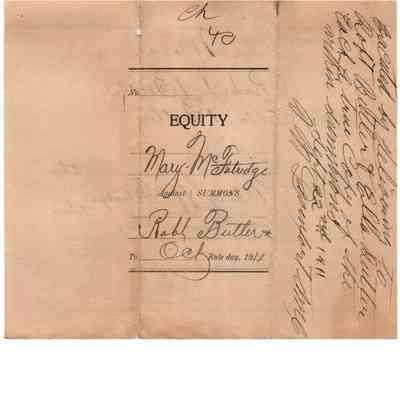 Ch
40
No.
EQUITY
Mary McFatridge
Against } SUMMONS
Robt Butler
To Oct Rule day, 1911
Executed by delivering to
Robt Butler & Ella Butler
Each a true Copy of the
within summons
1911